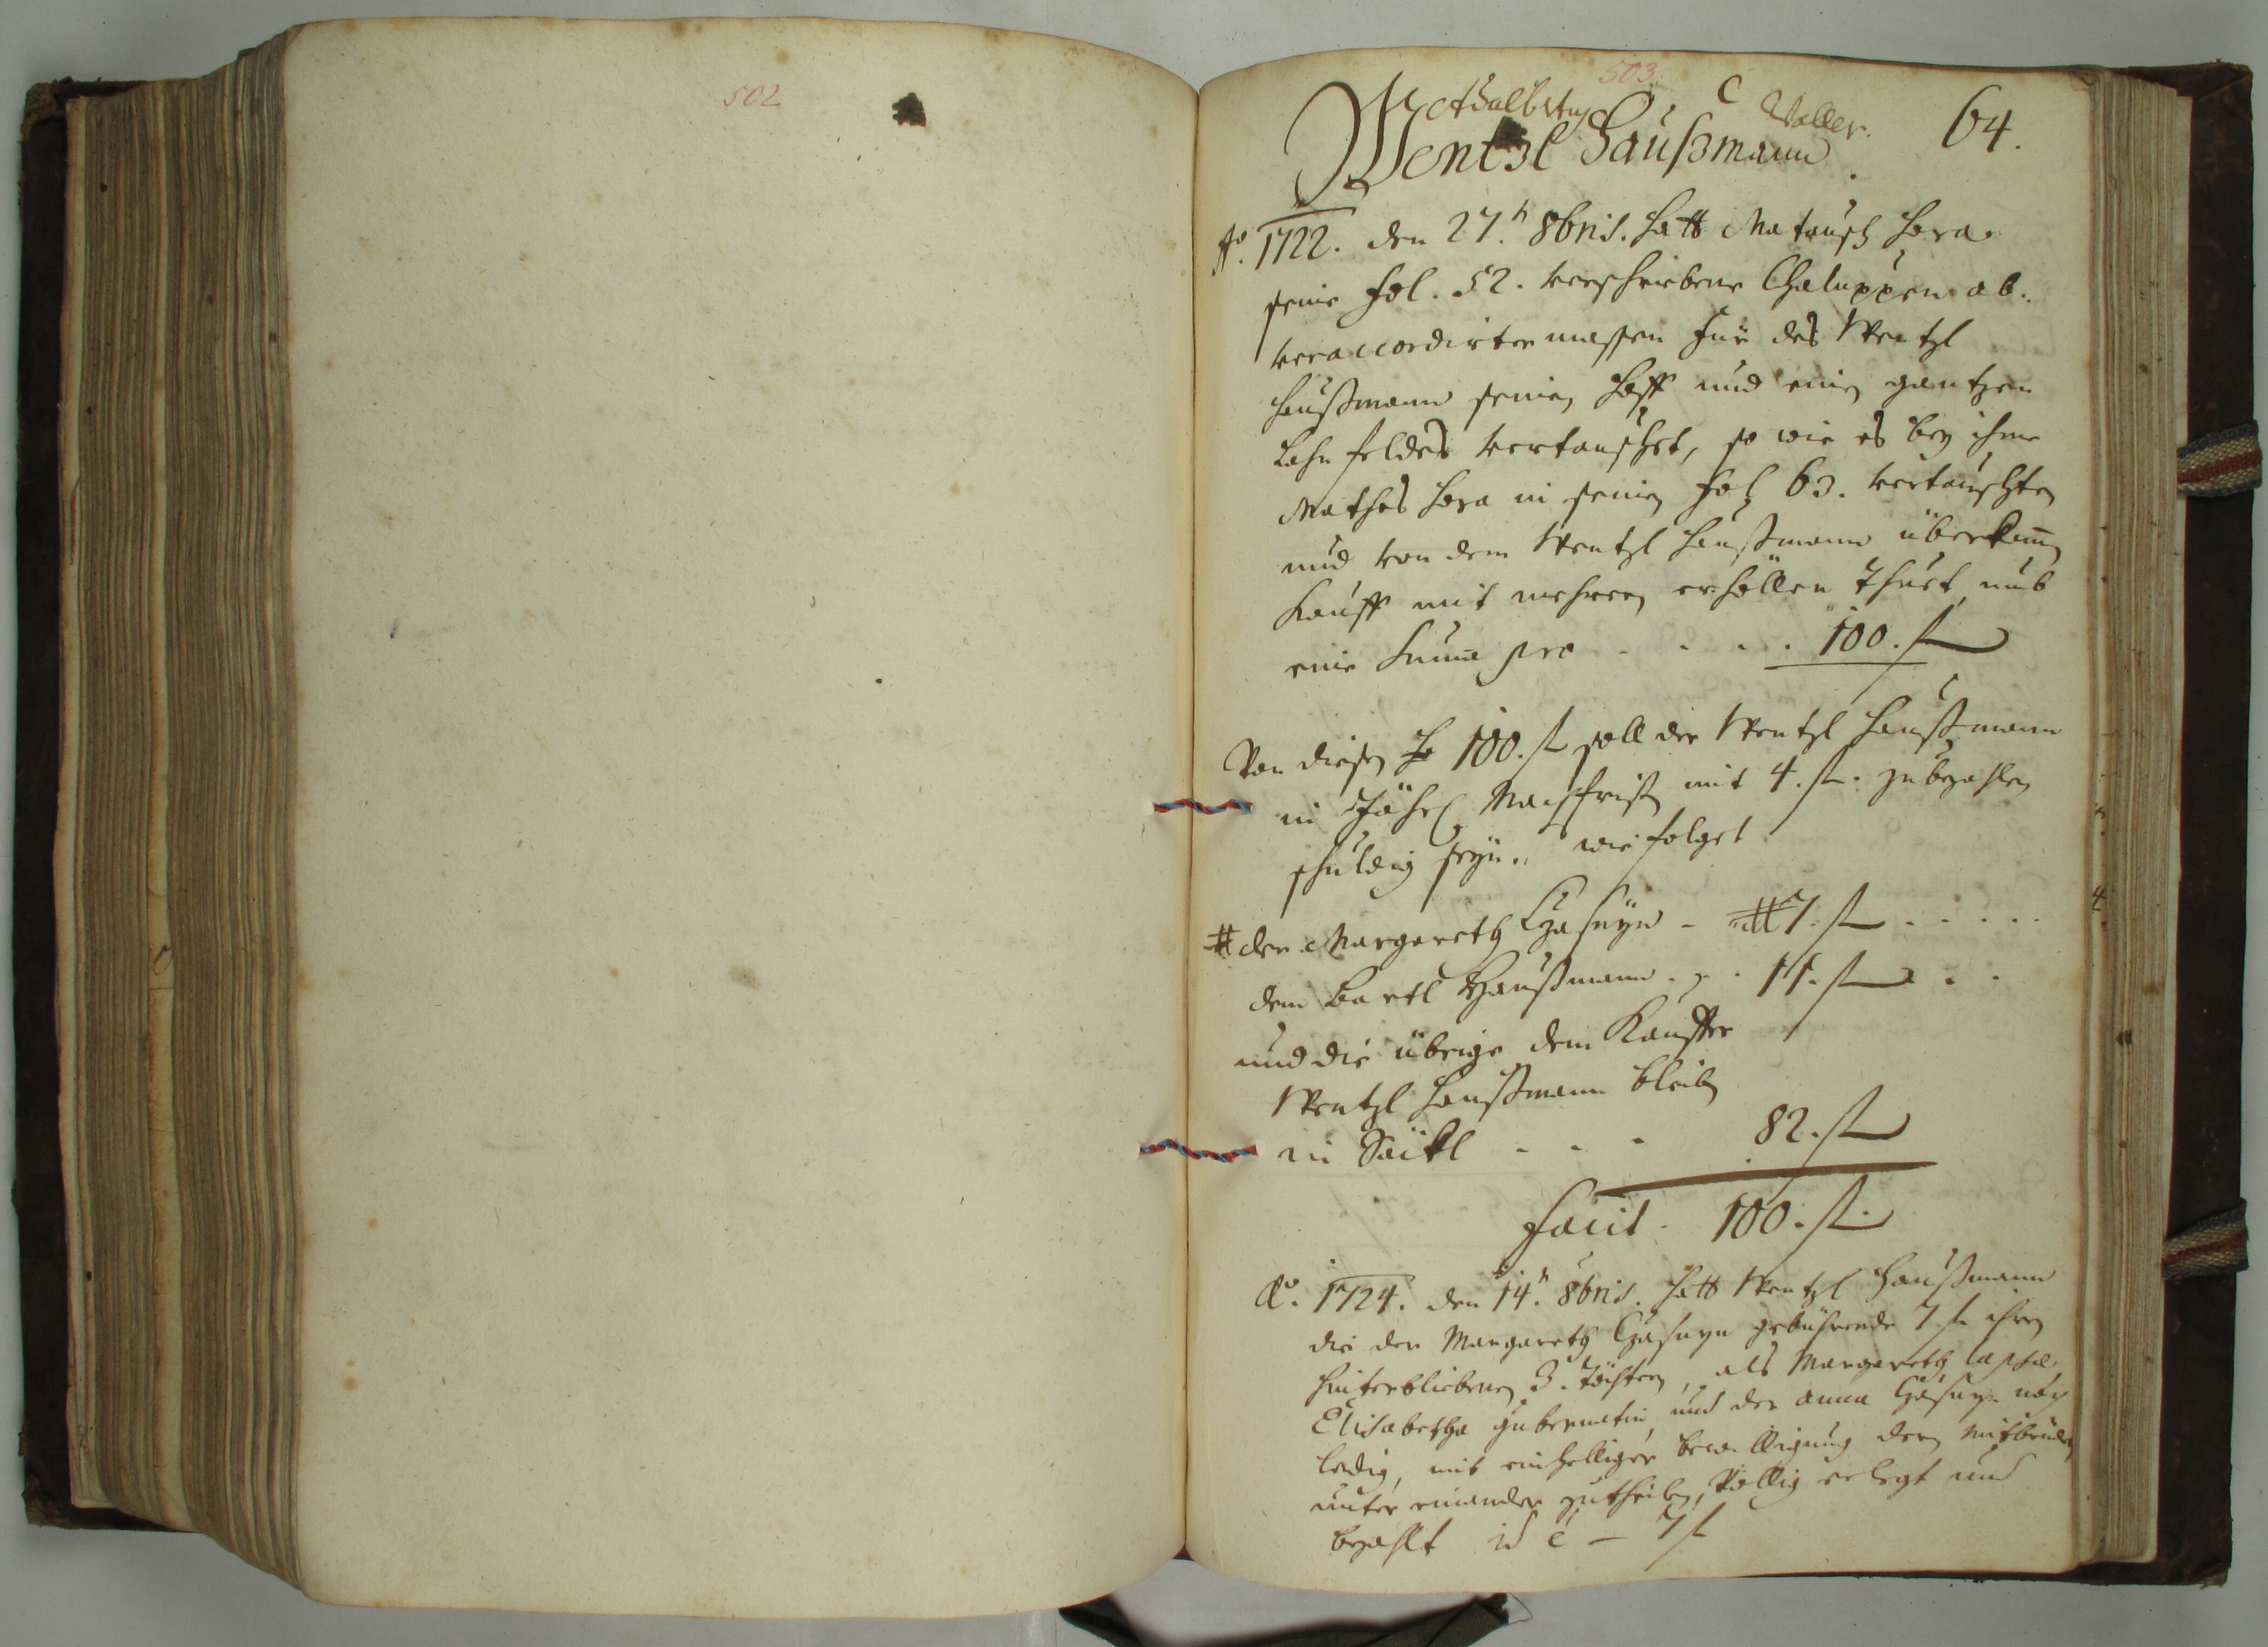 502
503.
C
Waller.
64.
Wentzl Haußmann
Ao. 1722. den 27.t 8bris. hatt Matausch Hora
seine fol. 52. verschriebene Chaluppen ab-
veraccordirter massen für des Wentzl
Haußmann seinen Hoff und einen gantzen
Lahn feldes vertauschet, so wie es bey ihme
Mathes Hora in seinen fol 63. vertauschten
und von dem Wentzl Haußmann
Kauff mit mehrern erhöllen thuet umb
eine Suma pro - - . . 100. fl
Von diesen 100. fl soll der Wentzl Haußmann
in Jährl. mit 4. fl. zu bezahlen
schuldig seyn. wie folget
der Margareth - 7. fl . . . . .
dem Bartl Haußmann . . . 11. fl . .
und die übrige dem Kauffer
Wentzl Haußmann bleiben
in - - - 82. fl
Facit. 100. fl.
Ao. 1724. den 14.t 8bris. hatt Wentzl Haußmann
die der Margareth gebührende 7. fl ihren
hinterbliebenen 3. Töchtern, als Margareth
Elisabetha und der Anna noch
ledig, mit einhelliger bewilligung
unter einander zutheilen, Völlig erlegt und
bezahlt id e — 7 fl